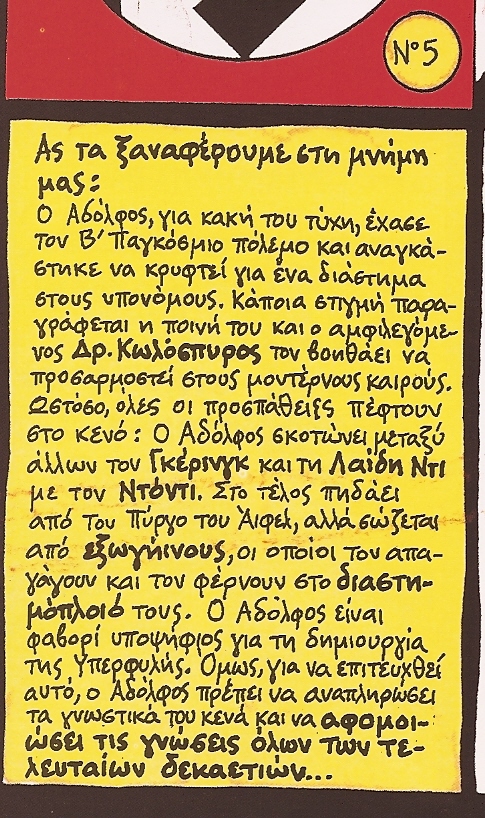 Νο5
Ας τα ξαναφέρουμε στη μνήμη
μας:
Ο Αδόλφος, για κακή του τύχη, έχασε
τον Β' Παγκόσμιο πόλεμο και αναγκά-
στηκε να κρυφτεί για ένα διάστημα
στους υπονόμους. Κάποια στιγμή παρα-
γράφεται η ποινή του και ο αμφιλεγόμε-
νος Δρ. Κωλόσπυρος τον βοηθάει να
προσαρμοστεί στους μοντέρνους καιρούς.
Ωστόσο, όλες οι προσπάθειες πέφτουν
στο κενό: Ο Αδόλφος σκοτώνει μεταξύ
άλλων τον Γκέρινγκ και τη Λαίδη Ντι
με τον Ντόντι. Στο τέλος πηδάει
από τον Πύργο του Άιφελ, αλλά σώζεται
από εξωγήινους, οι οποίοι τον απα-
γάγουν και τον φέρνουν στο διαστη-
μόπλοιό τους. Ο Αδόλφος είναι
φαβορί υποψήφιος για τη δημιουργία
της Υπερφυλής. Όμως, για να επιτευχθεί
αυτό, ο Αδόλφος πρέπει να αναπληρώσει
τα γνωστικά του κενά και να αφομοι-
ώσει τις γνώσεις όλων των τε-
λευταίων δεκαετιών...